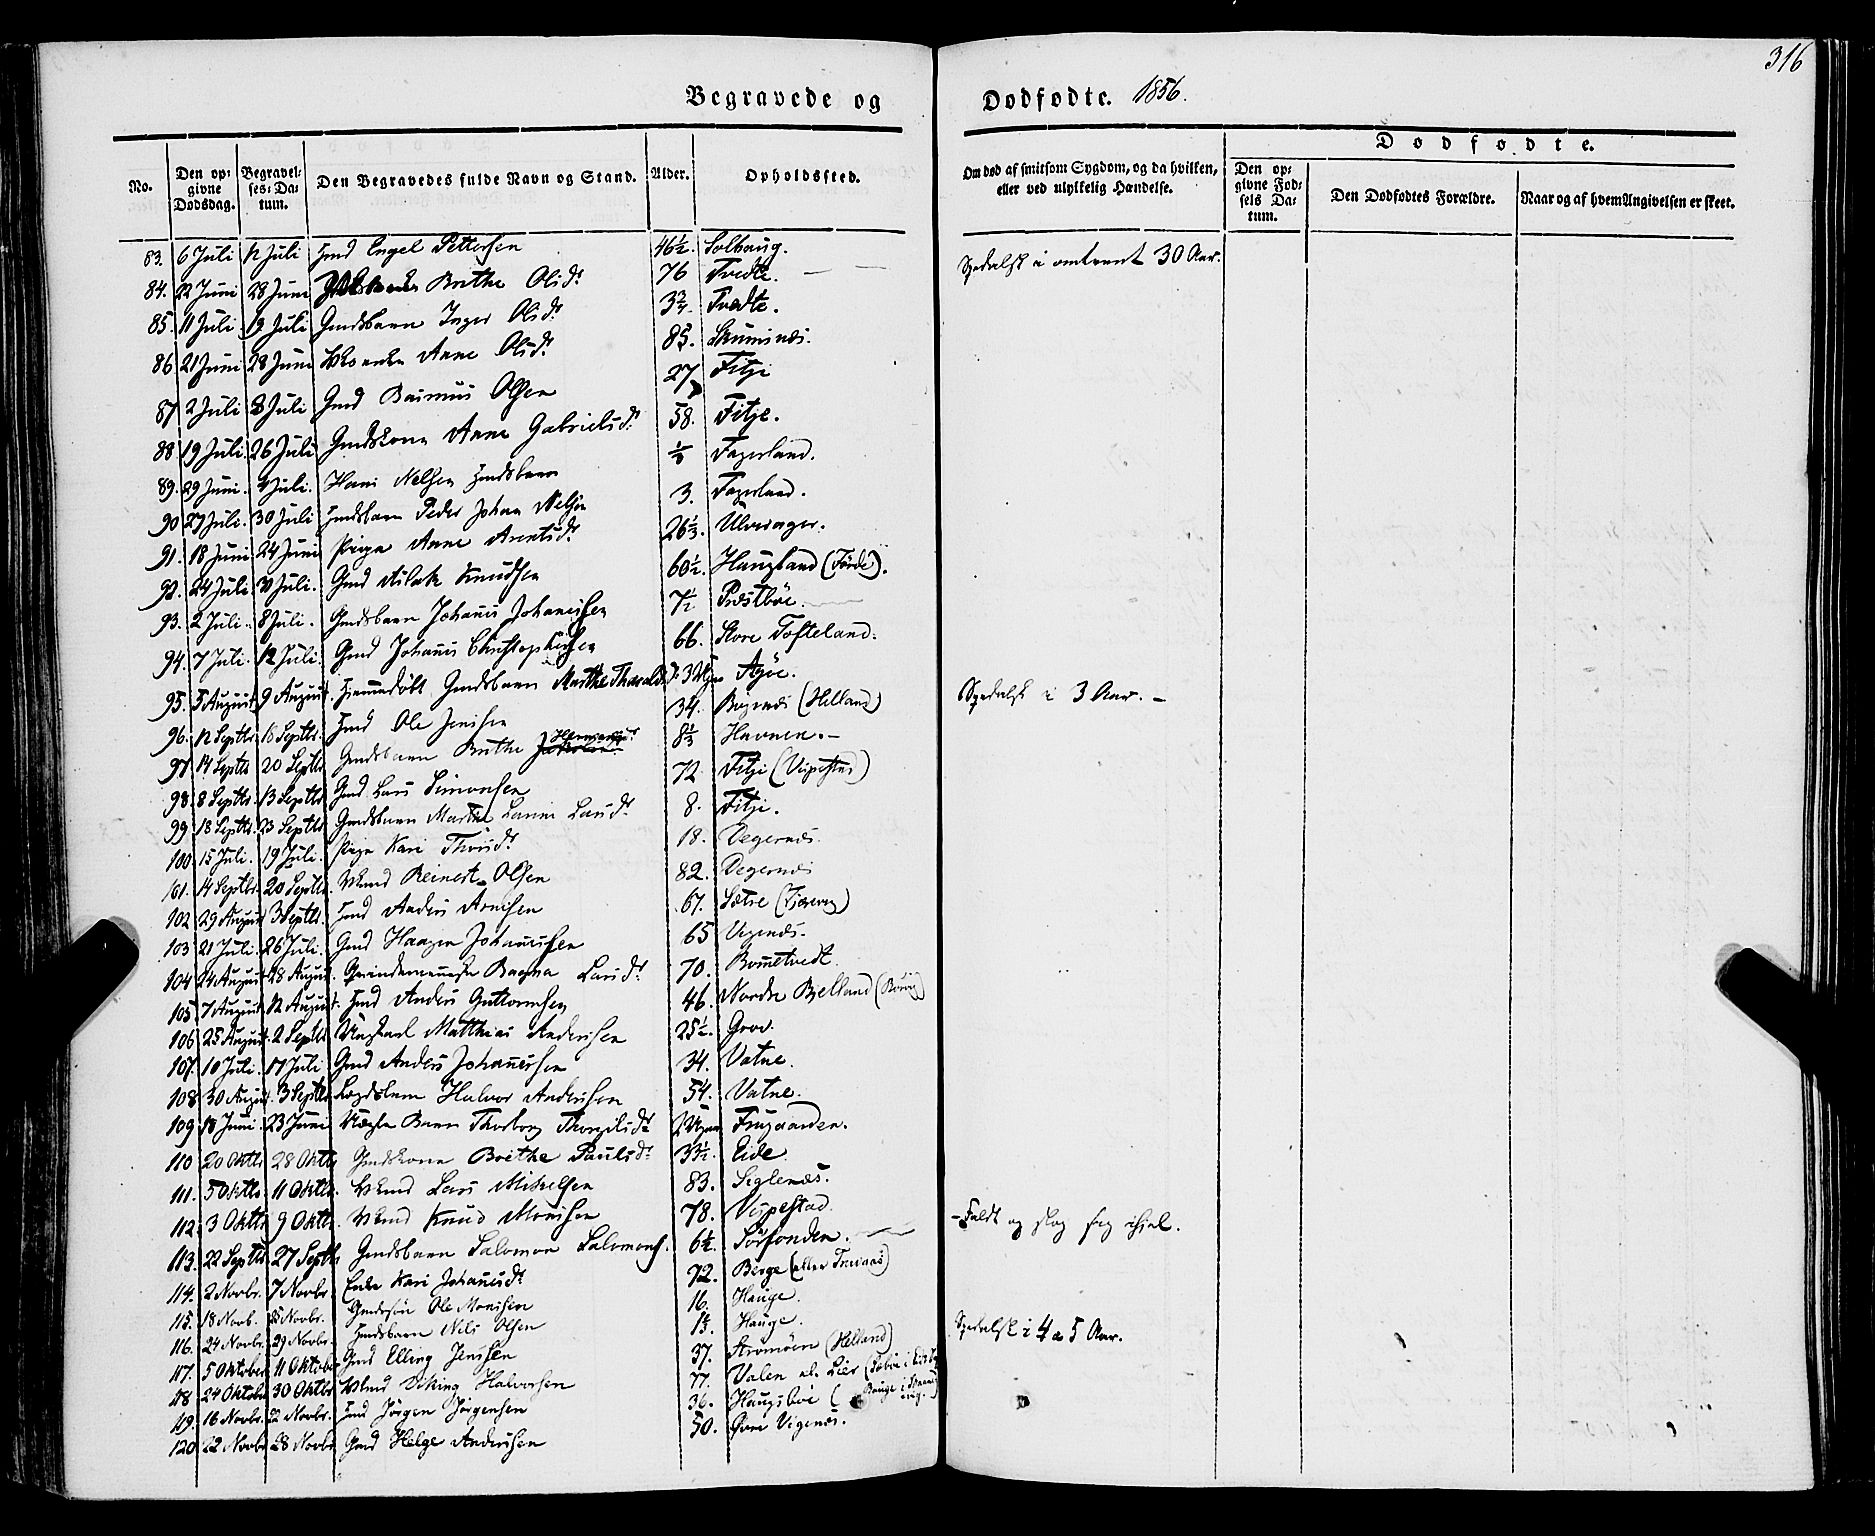 316
Begravede og Dødfødte. 1856.
No. Den opgivne Dødsdag. Begravelses-Datum. Den Begravedes fulde Navn og Stand. Alder. Opholdssted. Om død af smitsom Sygdom, og da hvilken, eller ved ulykkelig Hændelse.
Dødfødte.
Den opgivne Fødsels Datum. Den Dødfødtes Forældre. Naar og af hvem Angivelsen er skeet.
83. 6 Juli 12 Juli Hmd Engel Pettersen 46½. Solbaug. Spedalsk i omtrent 30 Aar.
84. 22 Juni 28 Juni Brithe Olsdr 76 Tvedte.
85. 11 Juli 19 Juli Gmdsbarn Inger Olsdr 3¾. Tvedte.
86 21 Juni 28 Juni Anne Olsdr 85. Skumsnæs.
87 2 Juli 8 Juli Gmd Rasmus Olsen 27 Fitje
88 19 Juli 26 Juli Gmdskone Anne Gabrielsdr 58. Fitje.
89. 29 Juni Juli. Hans Nelsen Hmdsbarn Fagerland.
90 27 Juli. 30 Juli Hmdsbarn Peder Johan Nelsen 3. Fagerland.
91. 18 Juni 24 Juni Pige Anne Arentsdr 26⅓. Ulverager.
92. 24 Juli Juli. Gmd Aslak Knudsen 60½. Haugland (Førde).
93. 2 Juli. 8 Juli. Gmdsbarn Johanes Johanessen 7½ Præstbøe.
94. 7 Juli. 12 Juli. Gmd Johanes Christophersen 66. Store Tofteland.
95. 5 August 9 August. Hjemmedøbt Gmdsbarn Marthe Tharaldsdr 3 Uger Agøe.
96. 12 Septbr. 18 Septbr. Hmd Ole Jensen 34. (Helland) Spedalsk i 3 Aar. –
97 14 Septbr 20 Septbr Gmdsbarn Brithe Hermansdr 8⅓ Havnen. –
98. 8 Septbr. 13 Septbr. Gmd Lars Simonsen 72 Fitje (Vispestad)
99 18 Septbr. 23 Septbr Gmdsbarn Marthe Larsdr 8. Fitje.
100 15 Juli. 19 Juli. Pige Kari Thorsdr 18. Vegernæs.
101. 14 Septbr. 20 Septbr. Reinert Olsen 82. Vegernæs
102 29 August 3 Septbr. Hmd Anders Arnesen 67. Sætre
103 21 Juli. 26 Juli. Gmd Haagen Johanessen 65 Vigenæs.
104 24 August 28 August. Ragna Larsdr 70. Rometvedt.
105 7 August 12 August. Hmd Anders Guttormsen 46. Nordre Bjelland
106 25 August. 2 Septbr Ungkarl Matthias Andersen 25½. Grov.
107. 10 Juli. 17 Juli Gmd Anders Johanessen 34. Vatne.
108 30 August. 3 Septbr Lægdslem Halvor Andersen 54. Vatne.
109 18 Juni. 23 Juni Uægte Barn Thorborg Thorgilsdr 2 Uger Frugaarden.
110 20 Oktbr 28 Oktbr Gmdskone Brithe Paulsdr 33½. Eide
111. 5 Oktbr. 11 Oktbr. Lars Mikelsen 83. Siglenæs.
112. 3 Oktbr 9 Oktbr. Knud Monsen 78. Vispestad.
113. 22 Septbr. 27 Septbr Gmdsbarn Salomon Salomons. 6½. Sørfonden. – Faldt og slog sig ihjel.
114. 2 Novbr. 7 Novbr. Enke Kari Johanesdr 72. Berge (eller
115. 18 Novb. 25 Novbr. Gmdssøn Ole Monsen 16. Hauge.
116. 24 Novbr. 29 Novbr. Hmdsbarn Nels Olsen Hauge.
117. 5 Oktober 11 Oktober Gmd Elling Jensen 37. Strømøen (Helland) Spedalsk i 4 a 5 Aar.
118 24 Oktbr 30 Oktbr Viking Halvorsen 77. Valen al. Lier
119. 16 Novbr. 22 Novbr. Hmd Jørgen Jørgensen 36. Haugsbøe
120 22 Novbr 28 Novbr Gmd Helge Andersen 50. Øvre Vigenæs.